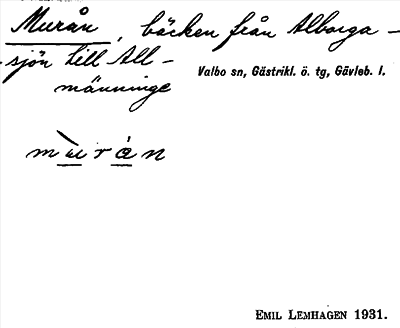 Murån, bäcken från Alborga-
sjön till All-
männinge
Valbo sn, Gästrikl. ö. tg, Gävleb. l.
mùrȧn
EMIL LEMHAGEN 1931.